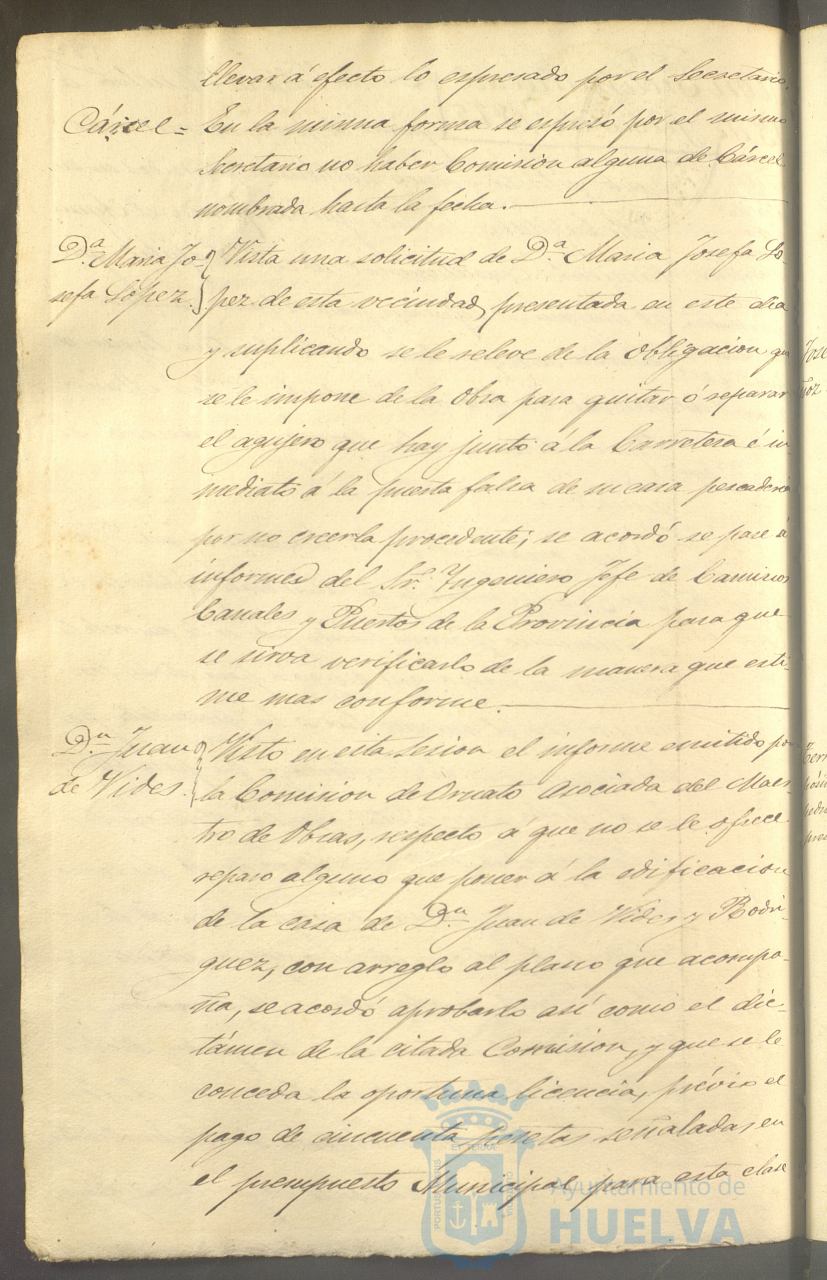 llevar á efecto lo espresado por el Secretario.
Cárcel = En la misma forma se espresó por el mismo
Secretario no haber Comision alguna de Cárcel
nombrada hasta la fecha.
Dª Maria Jo- Vista una solicitud de Dª Maria Josefa Lo-
sefa Lopez. pez de esta vecindad, presentada en este dia
y suplicando se le releve de la obligacion que
se le impone de la obra para quitar ó separar
el agujero que hay junto á la Carretera é in-
mediato á la puerta falsa de su casa pescaderia
por no creerla procedente; se acordó se pase á
informe del Sr. Ingeniero Jefe de Caminos
Canales y Puertos de la Provincia para que
se sirva verificarlo de la manera que esti-
me mas conforme.
Dn Juan Visto en esta Sesion el informe emitido por
de Vides. la Comision de Ornato asociada del Maes-
tro de Obras, respecto á que no se le ofrece
reparo alguno que poner á la edificacion
de la casa de Dn Juan de Vides y Rodri-
guez, con arreglo al plano que acompa-
ña, se acordó aprobarlo así como el dic-
támen de la citada Comision, y que se le
conceda la oportuna licencia, prévio el
pago de cincuenta pesetas señaladas en
el presupuesto Municipal para esta clase
Ayuntamiento de
HUELVA